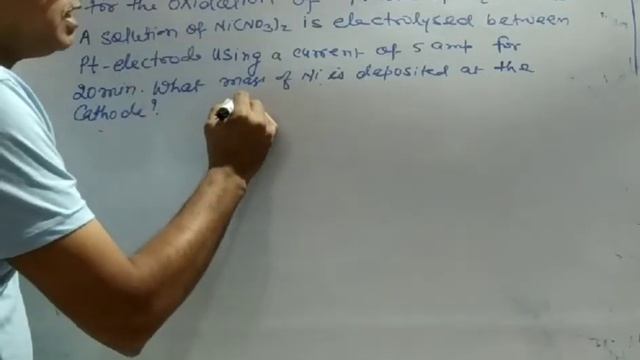 for the oxidation of
A solution of Ni(NO3)2 is electrolysed between
Pt-electrode using a current of 5 amp for
20min. What mass of Ni is deposited at the
Cathode?